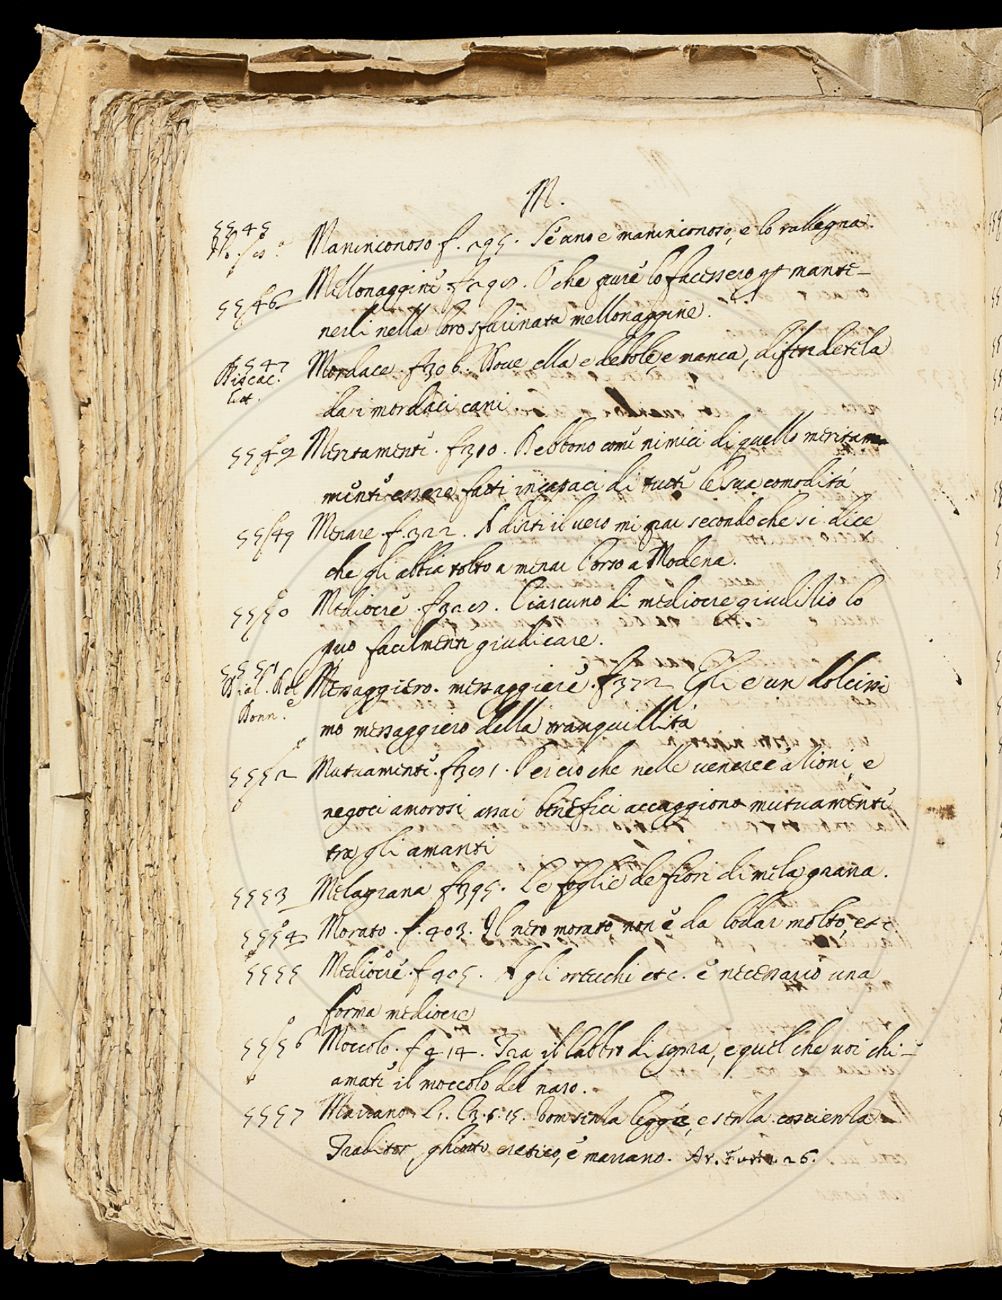 M.
5545
Maninconoso f. 295. Se ano e maninconoso, e lo rallegna.
5546 Mellonaggine. f. 298. O che pure lo facessero gt mante-
nerli nella loro sfacinata mellonaggine.
5547 Mordace. f. 306. Dove ella e debole, e manca, difenderela
da i mordaci cani
Meritamenti. f. 310. Debbono come nimici di quello meritam
menti essere fatti incapaci di tutti le sua comodità
5549 Menare f. 322. A dirti il vero mi par secondo che si dice
che gli abbia tolto a menar l'orso a Modena.
5550 Mediocre. f. 328. Ciascuno di mediocre giudizio lo
può facilmenti giudicare.
5551 Messaggiero. messaggiere. f. 372 Egli e un dolcissi
Donn.
mo messaggiero della tranquillità
5552 Mutuamenti. f. 381. Percio che nelle veneree azioni, e
negoci amorosi assai benefici accaggiono mutuamenti
tra gli amanti
5553 Melagrana f. 395. Le foglie de fiori di mela grana.
5554 Morato. f. 403. Il nero morato non è da lodar molto, etc
5555 Mediocre. f. 405. A gli orecchi etc. è necessario una
forma mediocre
5556 Moccolo. f. 414. Tra il labbro di sopra, e quel che voi chi-
amati il moccolo del naso.
5557 Marrano. L. C. 5. 15. Uom senza legge, e senza coscienza
Traditor, ghiotto eretico, è marrano. Ar. Fur. 26.